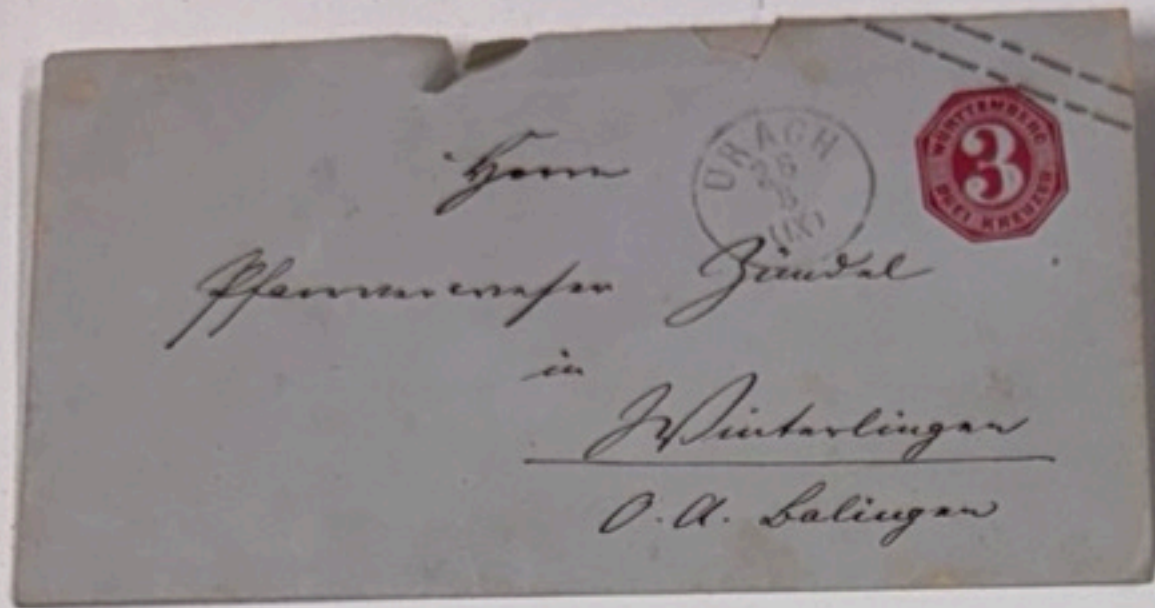 WÜRTTEMBERG
3
DREI KREUZER
URACH
Herrn
Pfarrverweser Zündel
in
Winterlingen
O. A. Balingen